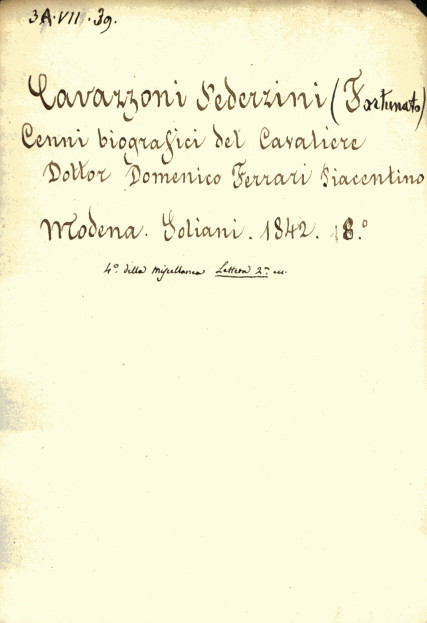 3A.VII.39.
Cavazzoni Pederzini (Fortunato)
Cenni biografici del Cavaliere
Dottor Domenico Ferrari Piacentino
Modena. Soliani. 1842. 8.°
4.° della Miscellanea Lettera